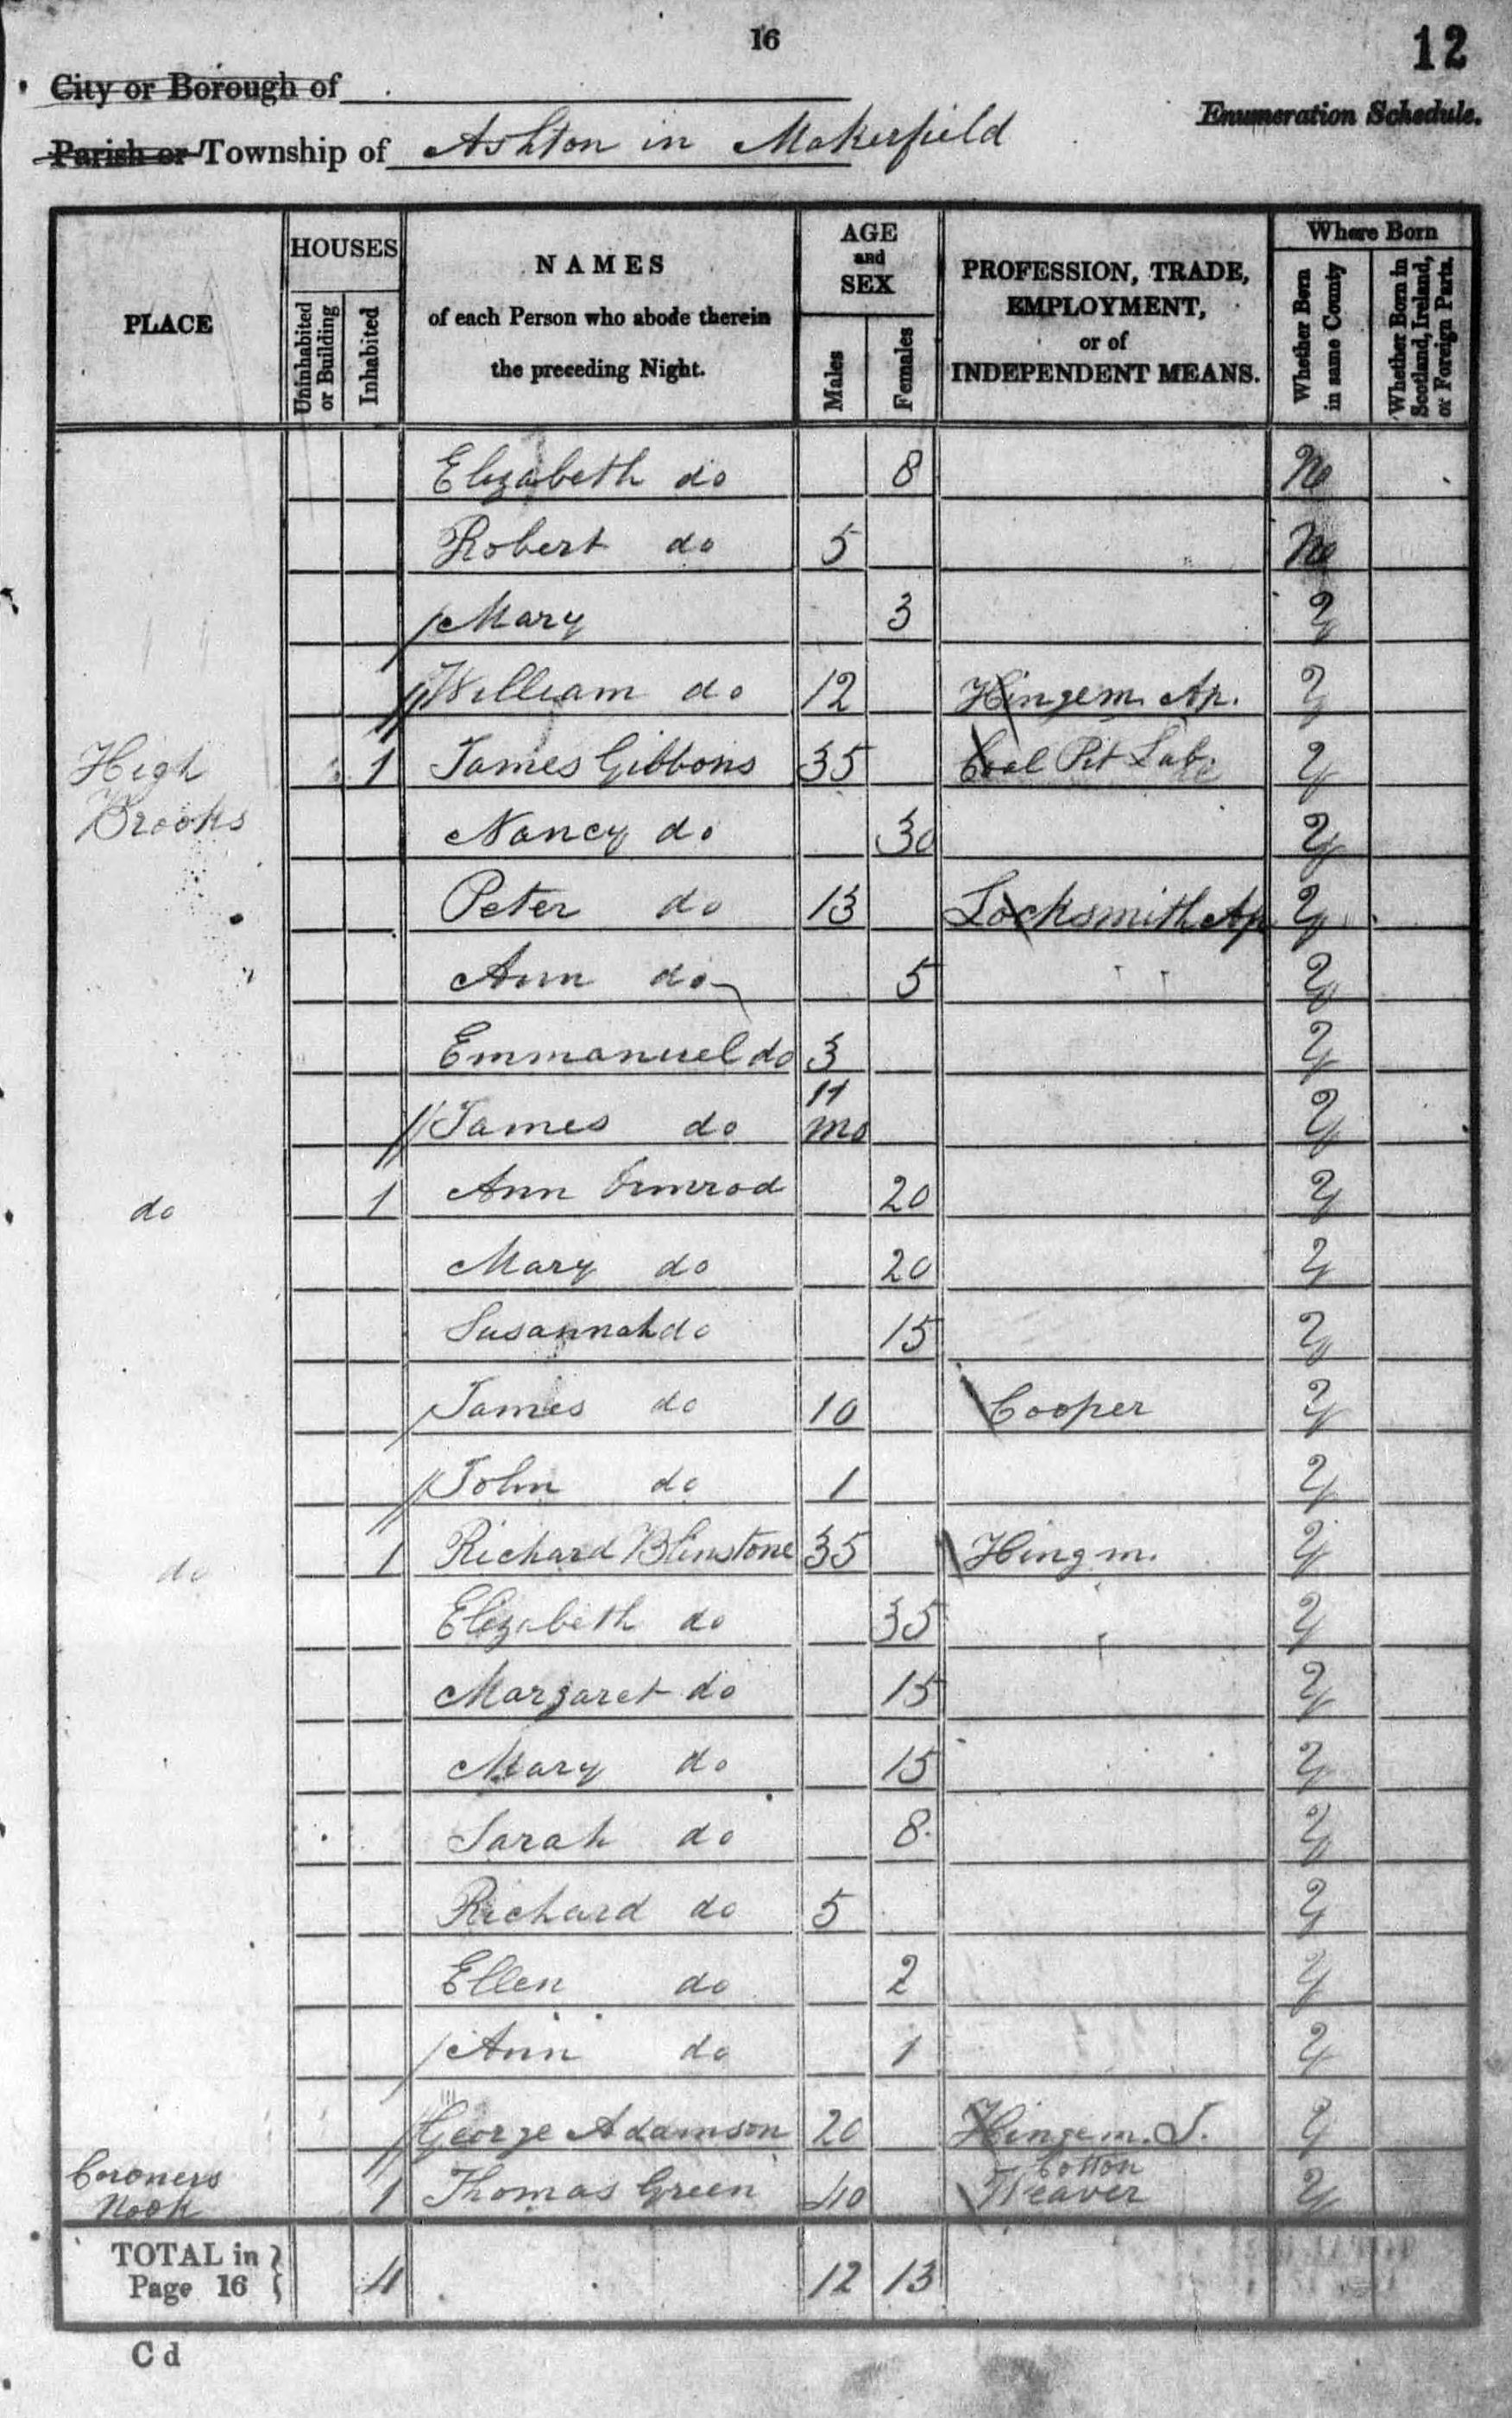 16
12
City or Borough of
Enumeration Schedule.
Parish or Township of Ashton in Makerfield
PLACE
HOUSES
Uninhabited or Building
Inhabited
NAMES
of each Person who abode therein
the preceding Night.
AGE
and
SEX
Males
Females
PROFESSION, TRADE,
EMPLOYMENT,
or of
INDEPENDENT MEANS.
Where Born
Whether Born in same County
Whether Born in Scotland, Ireland, or Foreign Parts.
Elizabeth do 8 No
Robert do 5 No
Mary 3 Y
William do 12 Hingem. Ap. Y
High Brooks 1 James Gibbons 35 Coal Pit Lab. Y
Nancy do 30 Y
Peter do 13 Locksmith Ap Y
Ann do 5 Y
Emmanuel do 3 Y
James do 11 mo Y
do 1 Ann Ormrod 20 Y
Mary do 20 Y
Susannah do 15 Y
James do 10 Cooper Y
John do 1 Y
do 1 Richard Blinstone 35 Hingm. Y
Elizabeth do 35 Y
Margaret do 15 Y
Mary do 15 Y
Sarah do 8 Y
Richard do 5 Y
Ellen do 2 Y
Ann do 1 Y
George Adamson 20 Hingem. J. Y
Coroners Nook 1 Thomas Green 40 Cotton Weaver Y
TOTAL in Page 16 4 12 13
C d